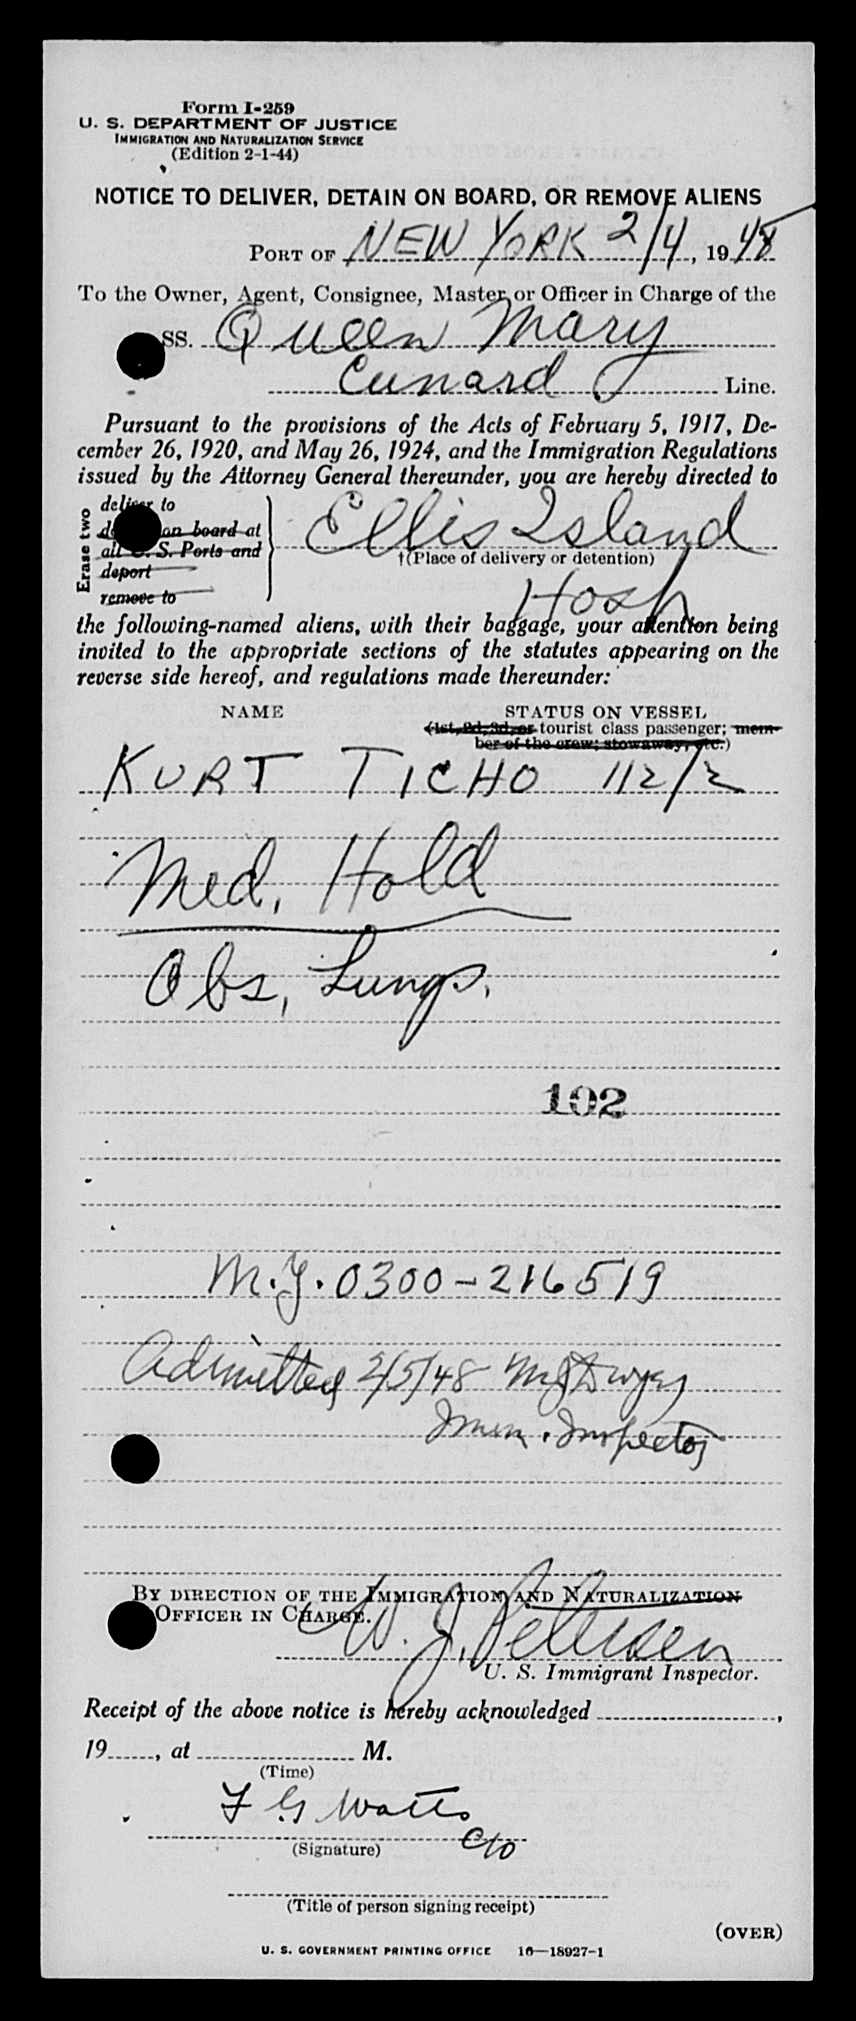 Form I-259
U. S. DEPARTMENT OF JUSTICE
IMMIGRATION AND NATURALIZATION SERVICE
(Edition 2-1-44)
NOTICE TO DELIVER, DETAIN ON BOARD, OR REMOVE ALIENS
PORT OF NEW YORK 2/4, 1948
To the Owner, Agent, Consignee, Master, or Officer in Charge of the
SS. Queen Mary
Cunard Line.
Pursuant to the provisions of the Acts of February 5, 1917, De-
cember 26, 1920, and May 26, 1924, and the Immigration Regulations
issued by the Attorney General thereunder, you are hereby directed to
Erase two
deliver to
on board at
all U. S. Ports and
deport
remove to
Ellis Island
†(Place of delivery or detention)
Hosp
the following-named aliens, with their baggage, your attention being
invited to the appropriate sections of the statutes appearing on the
reverse side hereof, and regulations made thereunder:
NAME STATUS ON VESSEL
(1st, 2d, 3d, or tourist class passenger; mem-
ber of the crew; stowaway, etc.)
KURT TICHO 112/2
Med. Hold
Obs, Lungs.
102
M.J. 0300-216519
Admitted 2/5/48 MJ Dwyer
Imm. Inspector
BY DIRECTION OF THE IMMIGRATION AND NATURALIZATION
OFFICER IN CHARGE.
W. J.
U. S. Immigrant Inspector.
Receipt of the above notice is hereby acknowledged ,
19 , at M.
(Time)
F G Watts
(Signature)
C/O
(Title of person signing receipt)
(OVER)
U. S. GOVERNMENT PRINTING OFFICE 16—18927-1